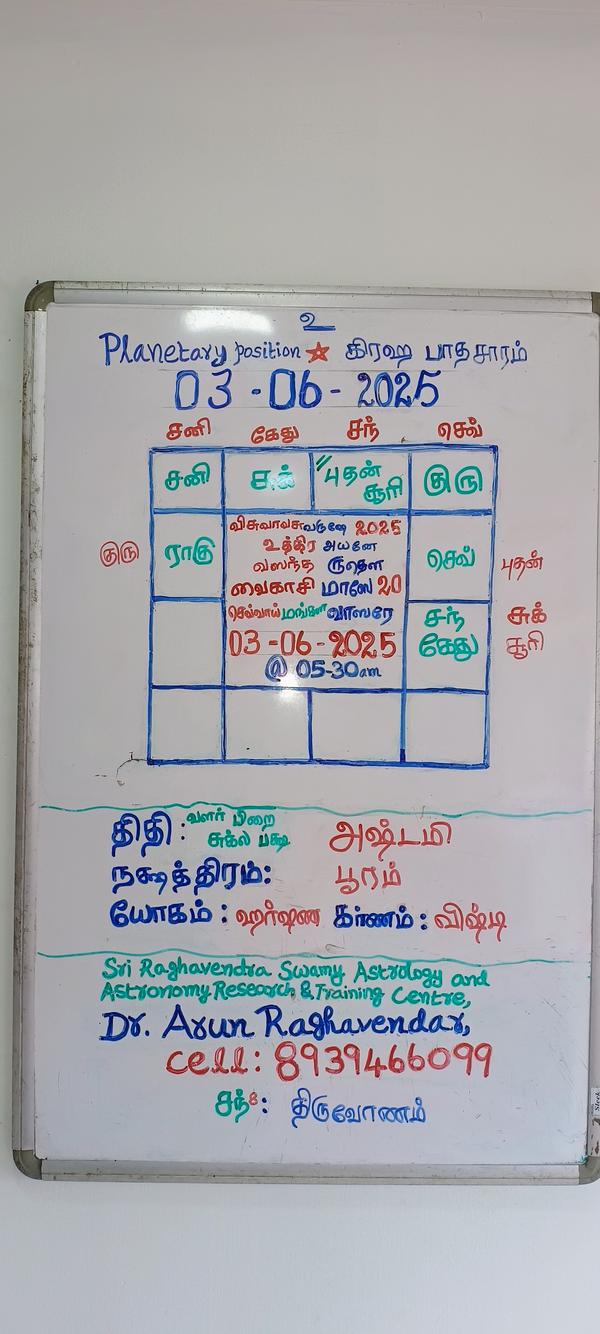 உ
Planetary Position ★ கிரஹ பாதசாரம்
03-06-2025
சனி கேது சந் செவ்
சனி சுக் புதன் குரு
சூரி
விசுவாவசுவருஷே 2025
உத்திர அயனே
குரு ராகு வஸந்த ருதௌ செவ் புதன்
வைகாசி மாஸே 20
செவ்வாய் மங்கள வாஸரே சந் சுக்
03-06-2025 கேது சூரி
@ 05-30am
திதி : வளர் பிறை அஷ்டமி
சுக்ல பக்ஷ
நக்ஷத்திரம்: பூரம்
யோகம் : ஹர்ஷண கர்ணம் : விஷ்டி
Sri Raghavendra Swamy Astrology and
Astronomy Research & Training Centre,
Dr. Arun Raghavendar,
cell: 8939466099
சந்8: திருவோணம்